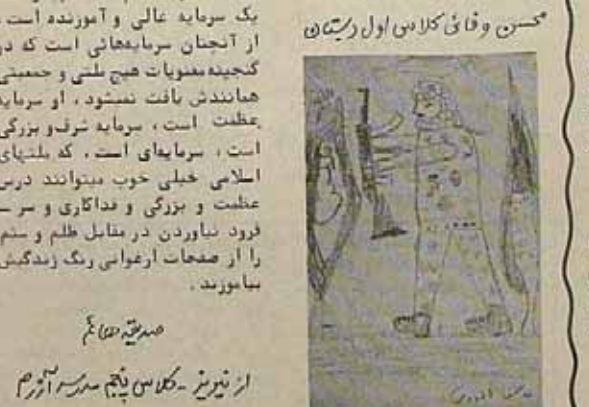 محسن وفائی کلاس اول دبستان
یک سرمایه عالی و آموزنده است
از آنچنان سرمایه‌هائی است که در
گنجینه معنویات هیچ ملتی و جمعیتی
همانندش یافت نمیشود، او سرمایه
عظمت است، سرمایه شرف و بزرگی
است، سرمایه‌ای است، که ملتهای
اسلامی خیلی خوب میتوانند درس
عظمت و بزرگی و فداکاری و سر
فرود نیاوردن در مقابل ظلم و ستم
را از صفحات ارغوانی رنگ زندگیش
بیاموزند.
صدیقه
از نیریز - کلاس پنجم مدرسه آزرم